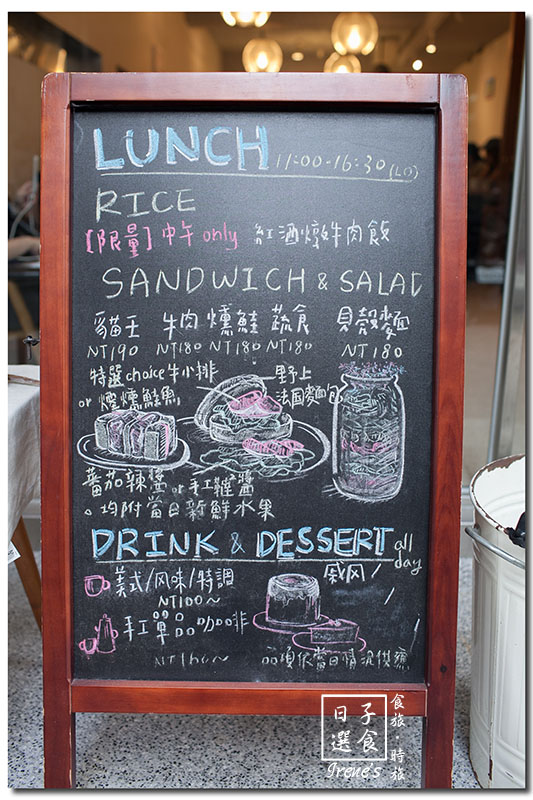 LUNCH 11:00-16:30(LO)
RICE
[限量]中午 only 紅酒燉牛肉飯
SANDWICH & SALAD
貓王 牛肉 燻鮭 蔬食 貝殼麵
NT190 NT180 NT180 NT180 NT180
特選choice牛小排
or 煙燻鮭魚
野上
法國麵包
蕃茄辣醬 or 手工醬
。均附當日新鮮水果
DRINK & DESSERT all day
美式/风味/特調
NT100~
戚风/
手工單品咖啡
NT160~
品項依當日情況供應
日子選食
Irene's
食旅·時旅